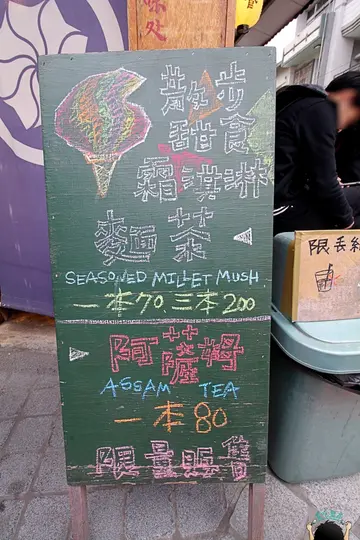 味处
散步
甜食
霜淇淋
麵茶
SEASONED MILLET MUSH
一本70 三本200
阿薩姆
ASSAM TEA
一本80
限量販售
限丟紙